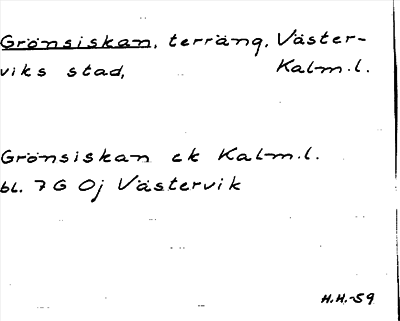 Grönsiskan, terräng, Väster-
viks stad, Kalm.l.
Grönsiskan ek Kalm.l.
bl. 7 G Oj Västervik
H.H.-59